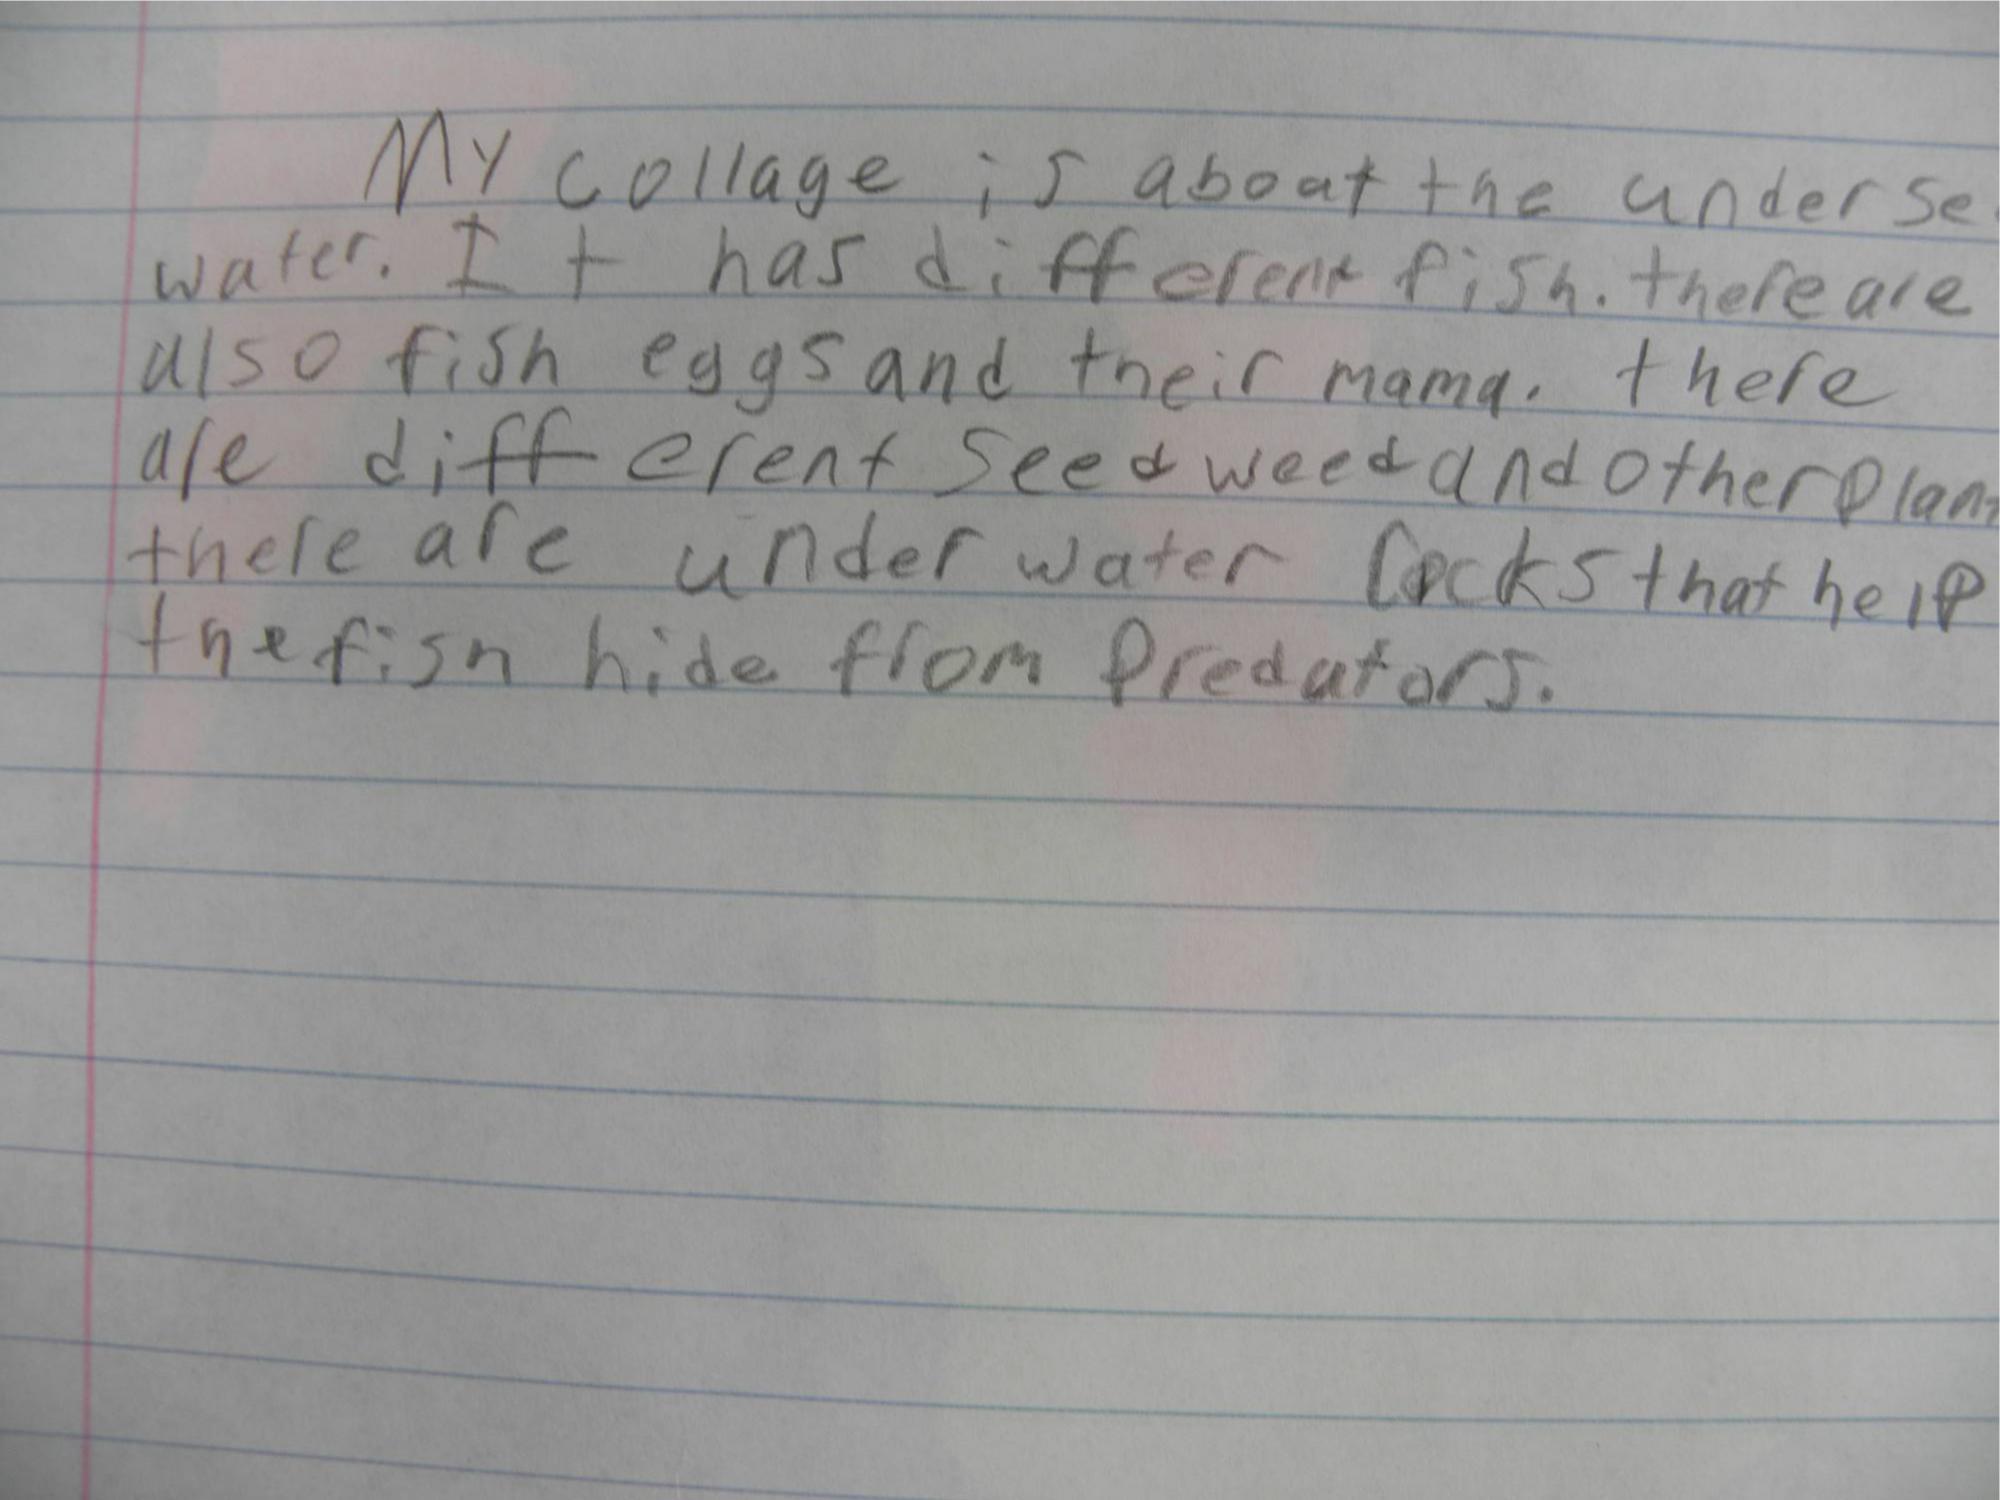 My collage is about the under se
water. It has different fish. there are
also fish eggs and their mama. there
are different Seedweed and other plant
there are under water rocks that help
the fish hide from predators.